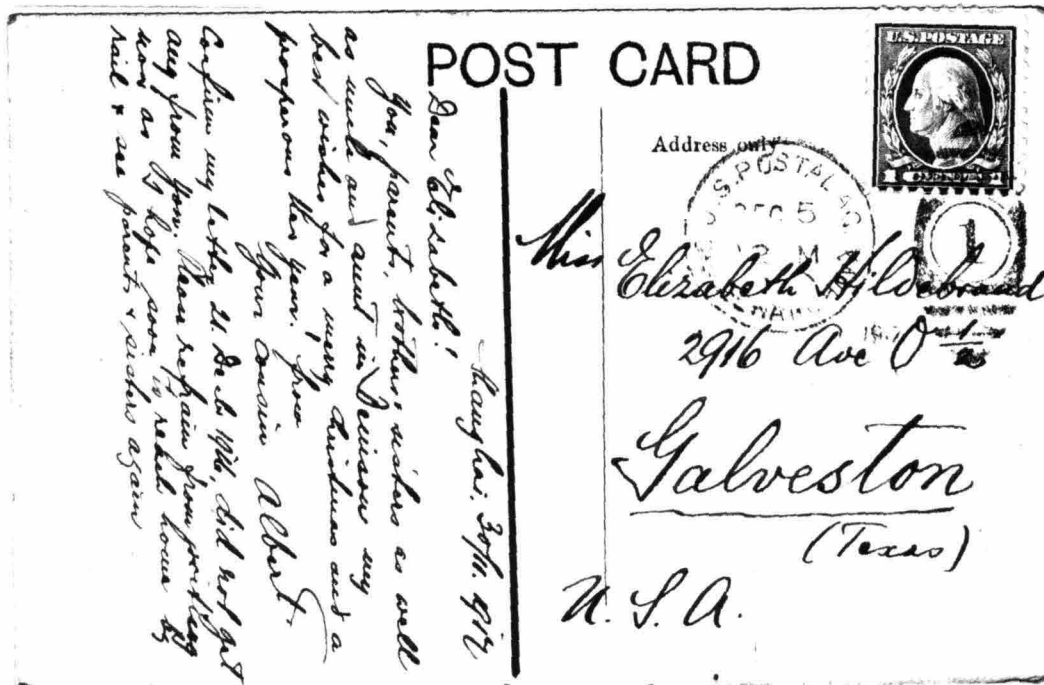 POST CARD
Address only
U.S.POSTAGE
U.S. POSTAL AG
DEC 5
1
Miss Elizabeth Hildebrand
2916 Ave O 1/2
Galveston
(Texas)
U. S. A.
Shanghai, 30/11. 1917
Dear Elisabeth!
You, parents, brothers & sisters as well
as uncle and aunt in Denison my
best wishes for a merry christmas and a
prosperous New year. from
Your cousin Albert.
Confirm my letter 21. Decb. 1916, did not get
any from you. Please refrain from writing
now as I hope soon to reach home by
rail & see parents & sisters again